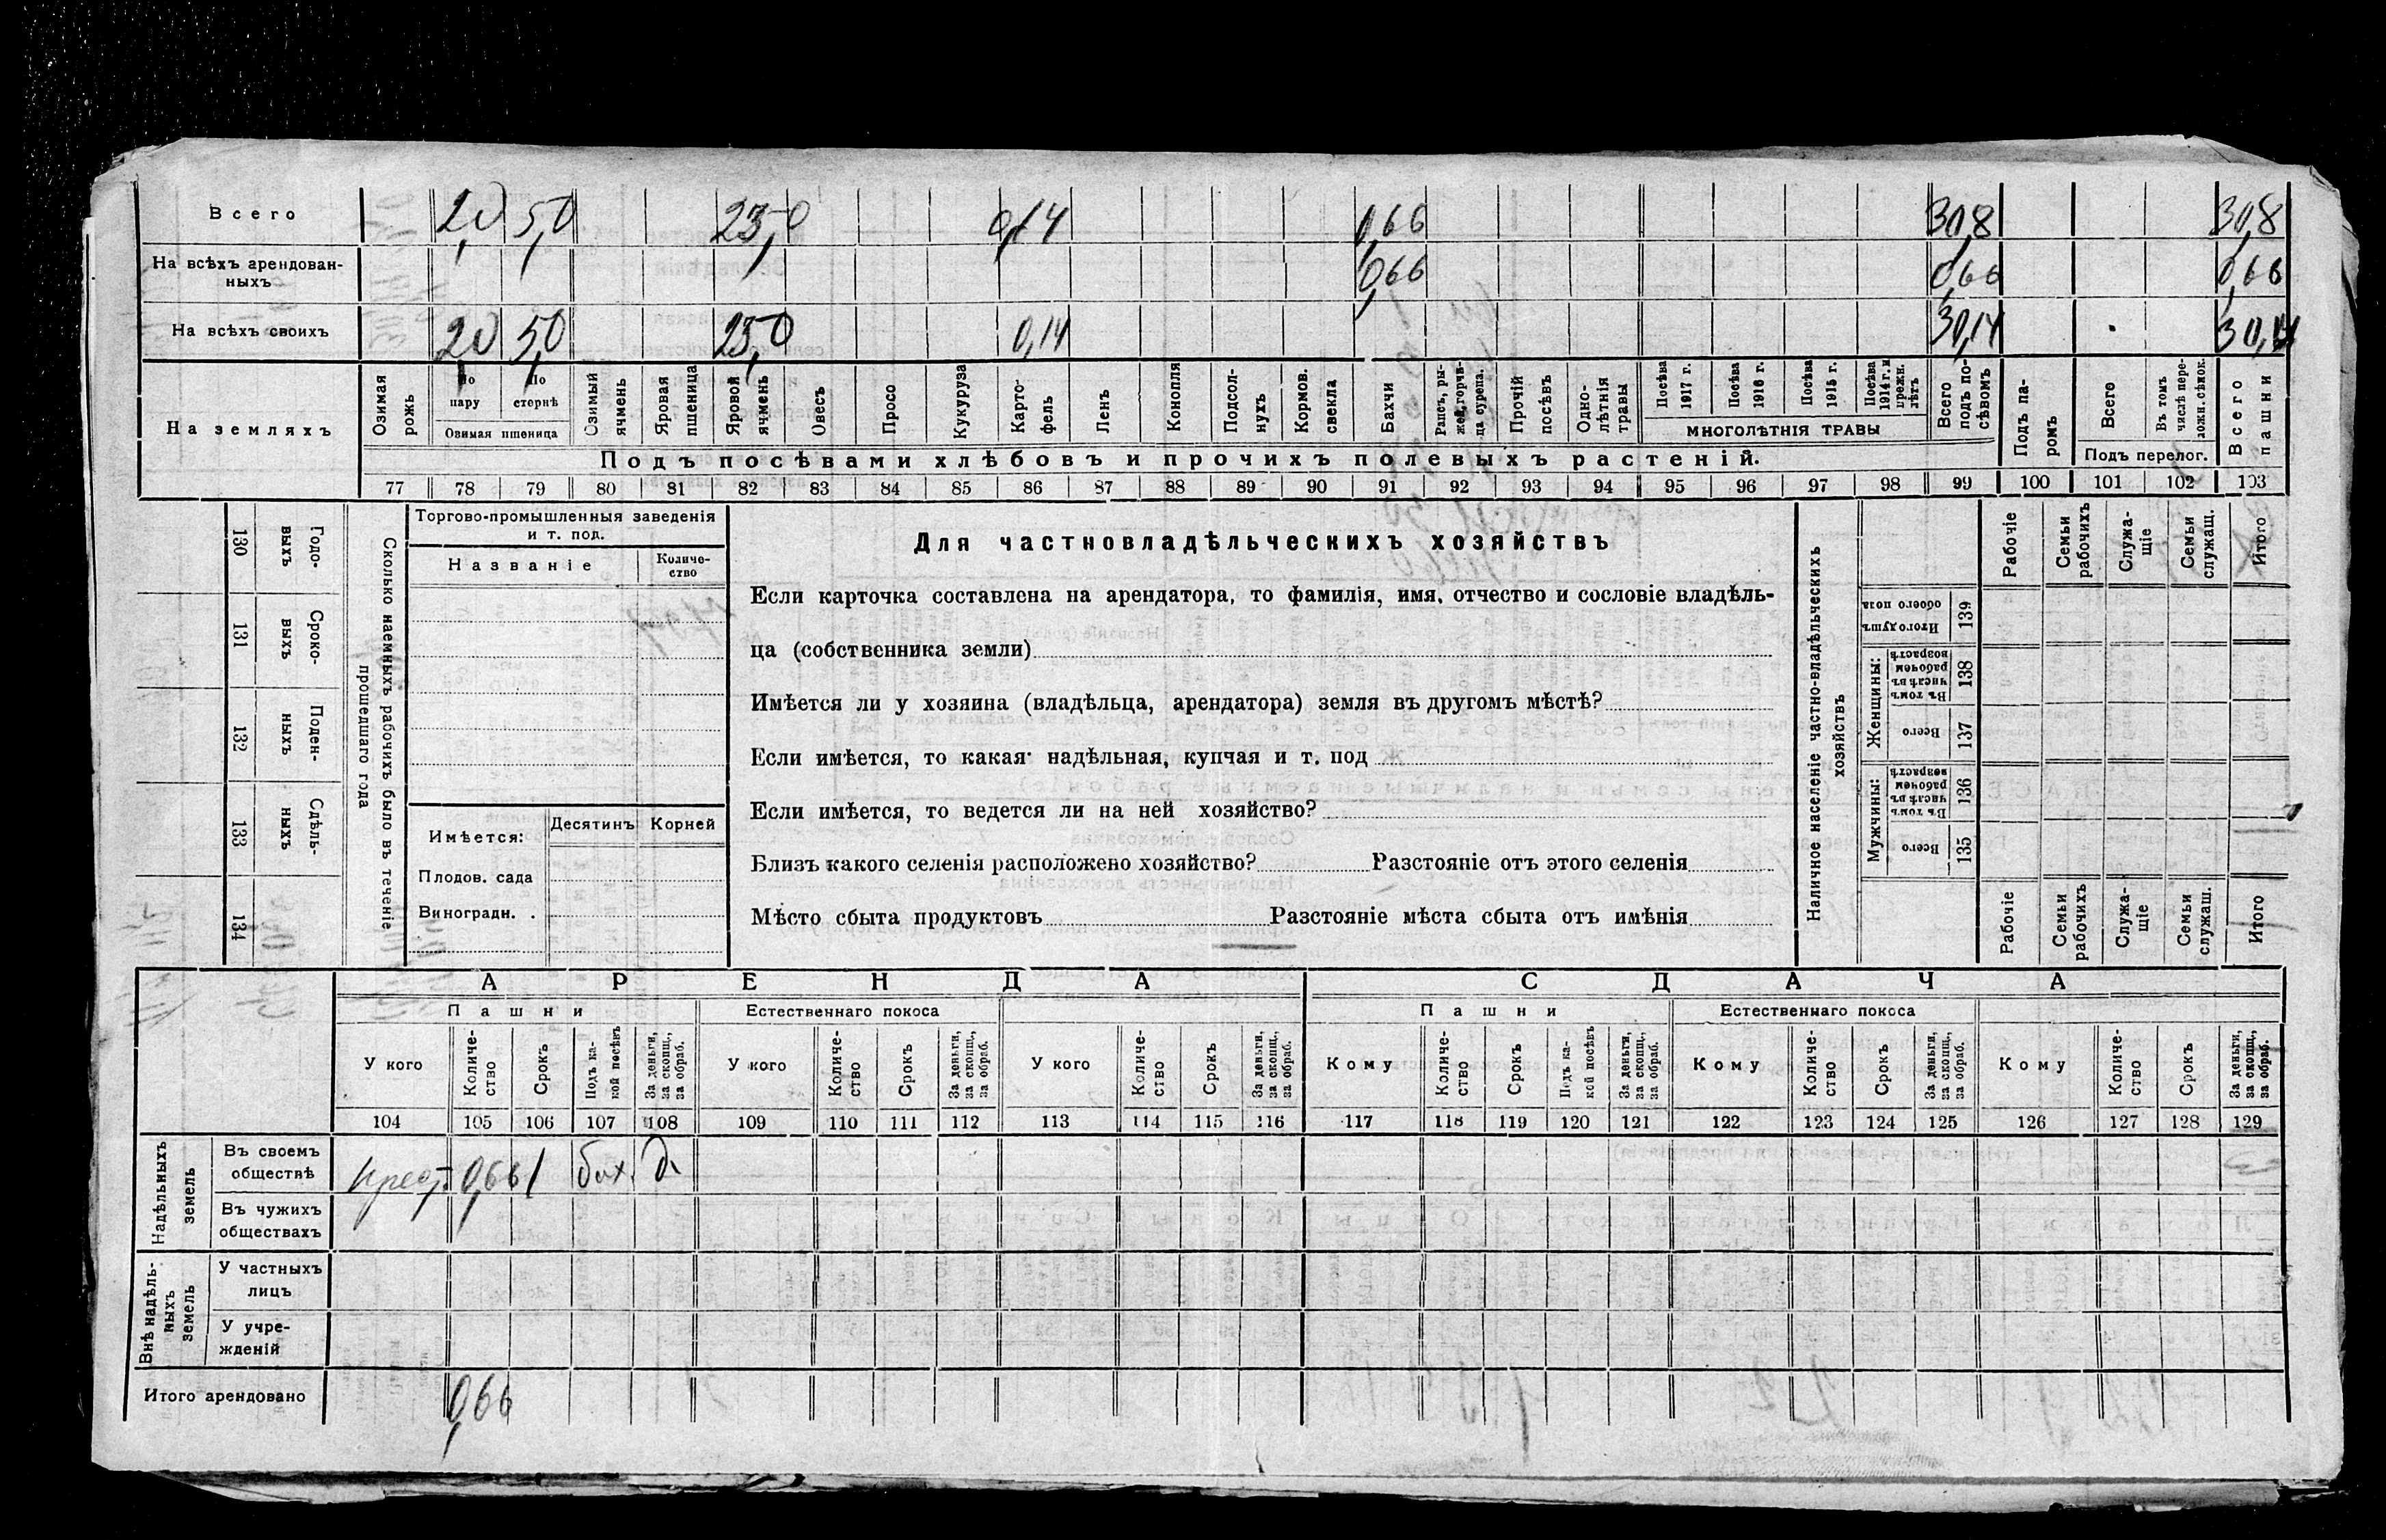 Всего 2,0 5,0 23,0 0,14 0,66 30,8 30,8
На всѣхъ арендован-
ныхъ 0,66 0,66 0,66
На всѣхъ своихъ 2,0 5,0 23,0 0,14 30,14 30,14
На земляхъ
Озимая рожь
По пару
По стернѣ
Озимая пшеница
Озимый ячмень
Яровая пшеница
Яровой ячмень
Овесъ
Просо
Кукуруза
Карто-
фель
Ленъ
Конопля
Подсол-
нухъ
Кормов. свекла
Бахчи
Рапсъ, ры-
жей, горчи-
ца сурепа.
Прочій посѣвъ
Одно-
лѣтнія травы
Посѣва 1917 г.
Посѣва 1916 г.
Посѣва 1915 г.
Посѣва 1914 г. и прежн. лѣтъ
МНОГОЛѢТНІЯ ТРАВЫ
Всего подъ по-
сѣвомъ
Подъ па-
ромъ
Всего
Въ томъ числѣ пере-
ложн. сѣнок.
Подъ перелог.
Всего пашни
Подъ посѣвами хлѣбовъ и прочихъ полевыхъ растеній.
77 78 79 80 81 82 83 84 85 86 87 88 89 90 91 92 93 94 95 96 97 98 99 100 101 102 103
130 Годо-
выхъ
131 Сроко-
выхъ
132 Поден-
ныхъ
133 Сдѣль-
ныхъ
134
Сколько наемныхъ рабочихъ было въ теченіе
прошедшаго года
Торгово-промышленныя заведенія
и т. под.
Названіе
Количе-
ство
Имѣется:
Десятинъ
Корней
Плодов. сада
Виноградн. .
Для частновладѣльческихъ хозяйствъ
Если карточка составлена на арендатора, то фамилія, имя, отчество и сословіе владѣль-
ца (собственника земли)
Имѣется ли у хозяина (владѣльца, арендатора) земля въ другомъ мѣстѣ?
Если имѣется, то какая: надѣльная, купчая и т. под
Если имѣется, то ведется ли на ней хозяйство?
Близъ какого селенія расположено хозяйство? Разстояніе отъ этого селенія
Мѣсто сбыта продуктовъ Разстояніе мѣста сбыта отъ имѣнія
Наличное населеніе частно-владѣльческихъ
хозяйствъ
Рабочіе
Семьи рабочихъ
Служа-
щіе
Семьи служащ.
Итого
Итого душъ обоего пола 139
Женщины:
Въ томъ числѣ въ рабочем возрастѣ 138
Всего 137
Мужчины:
Въ томъ числѣ въ рабочем возрастѣ 136
Всего 135
Рабочіе
Семьи рабочихъ
Служа-
щіе
Семьи служащ.
Итого
АРЕНДА
СДАЧА
Пашни
Естественнаго покоса
Пашни
Естественнаго покоса
У кого
Количе-
ство
Срокъ
Подъ ка-
кой посѣвъ
За деньги, за скопщ., за обраб.
У кого
Количе-
ство
Срокъ
За деньги, за скопщ., за обраб.
У кого
Количе-
ство
Срокъ
За деньги, за скопщ., за обраб.
Кому
Количе-
ство
Срокъ
Подъ ка-
кой посѣвъ
За деньги, за скопщ., за обраб.
Кому
Количе-
ство
Срокъ
За деньги, за скопщ., за обраб.
Кому
Количе-
ство
Срокъ
За деньги, за скопщ., за обраб.
104 105 106 107 108 109 110 111 112 113 114 115 116 117 118 119 120 121 122 123 124 125 126 127 128 129
Надѣльныхъ земель
Въ своемъ
обществѣ крест. 0,66 1 бах. д
Въ чужихъ
обществахъ
Внѣ надѣль-
ныхъ земель
У частныхъ
лицъ
У учре-
жденій
Итого арендовано 0,66